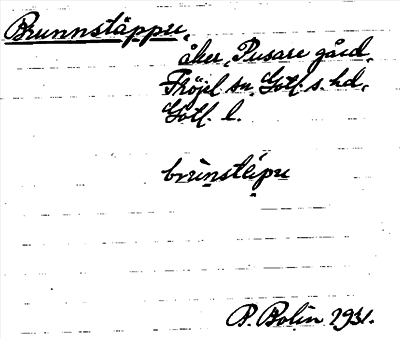 Brunnstäppu,
åker, Pusare gård,
Fröjel sn, Gotl. s. hd,
Gotl. l.
brunstäpu
P. Bolin 1931.